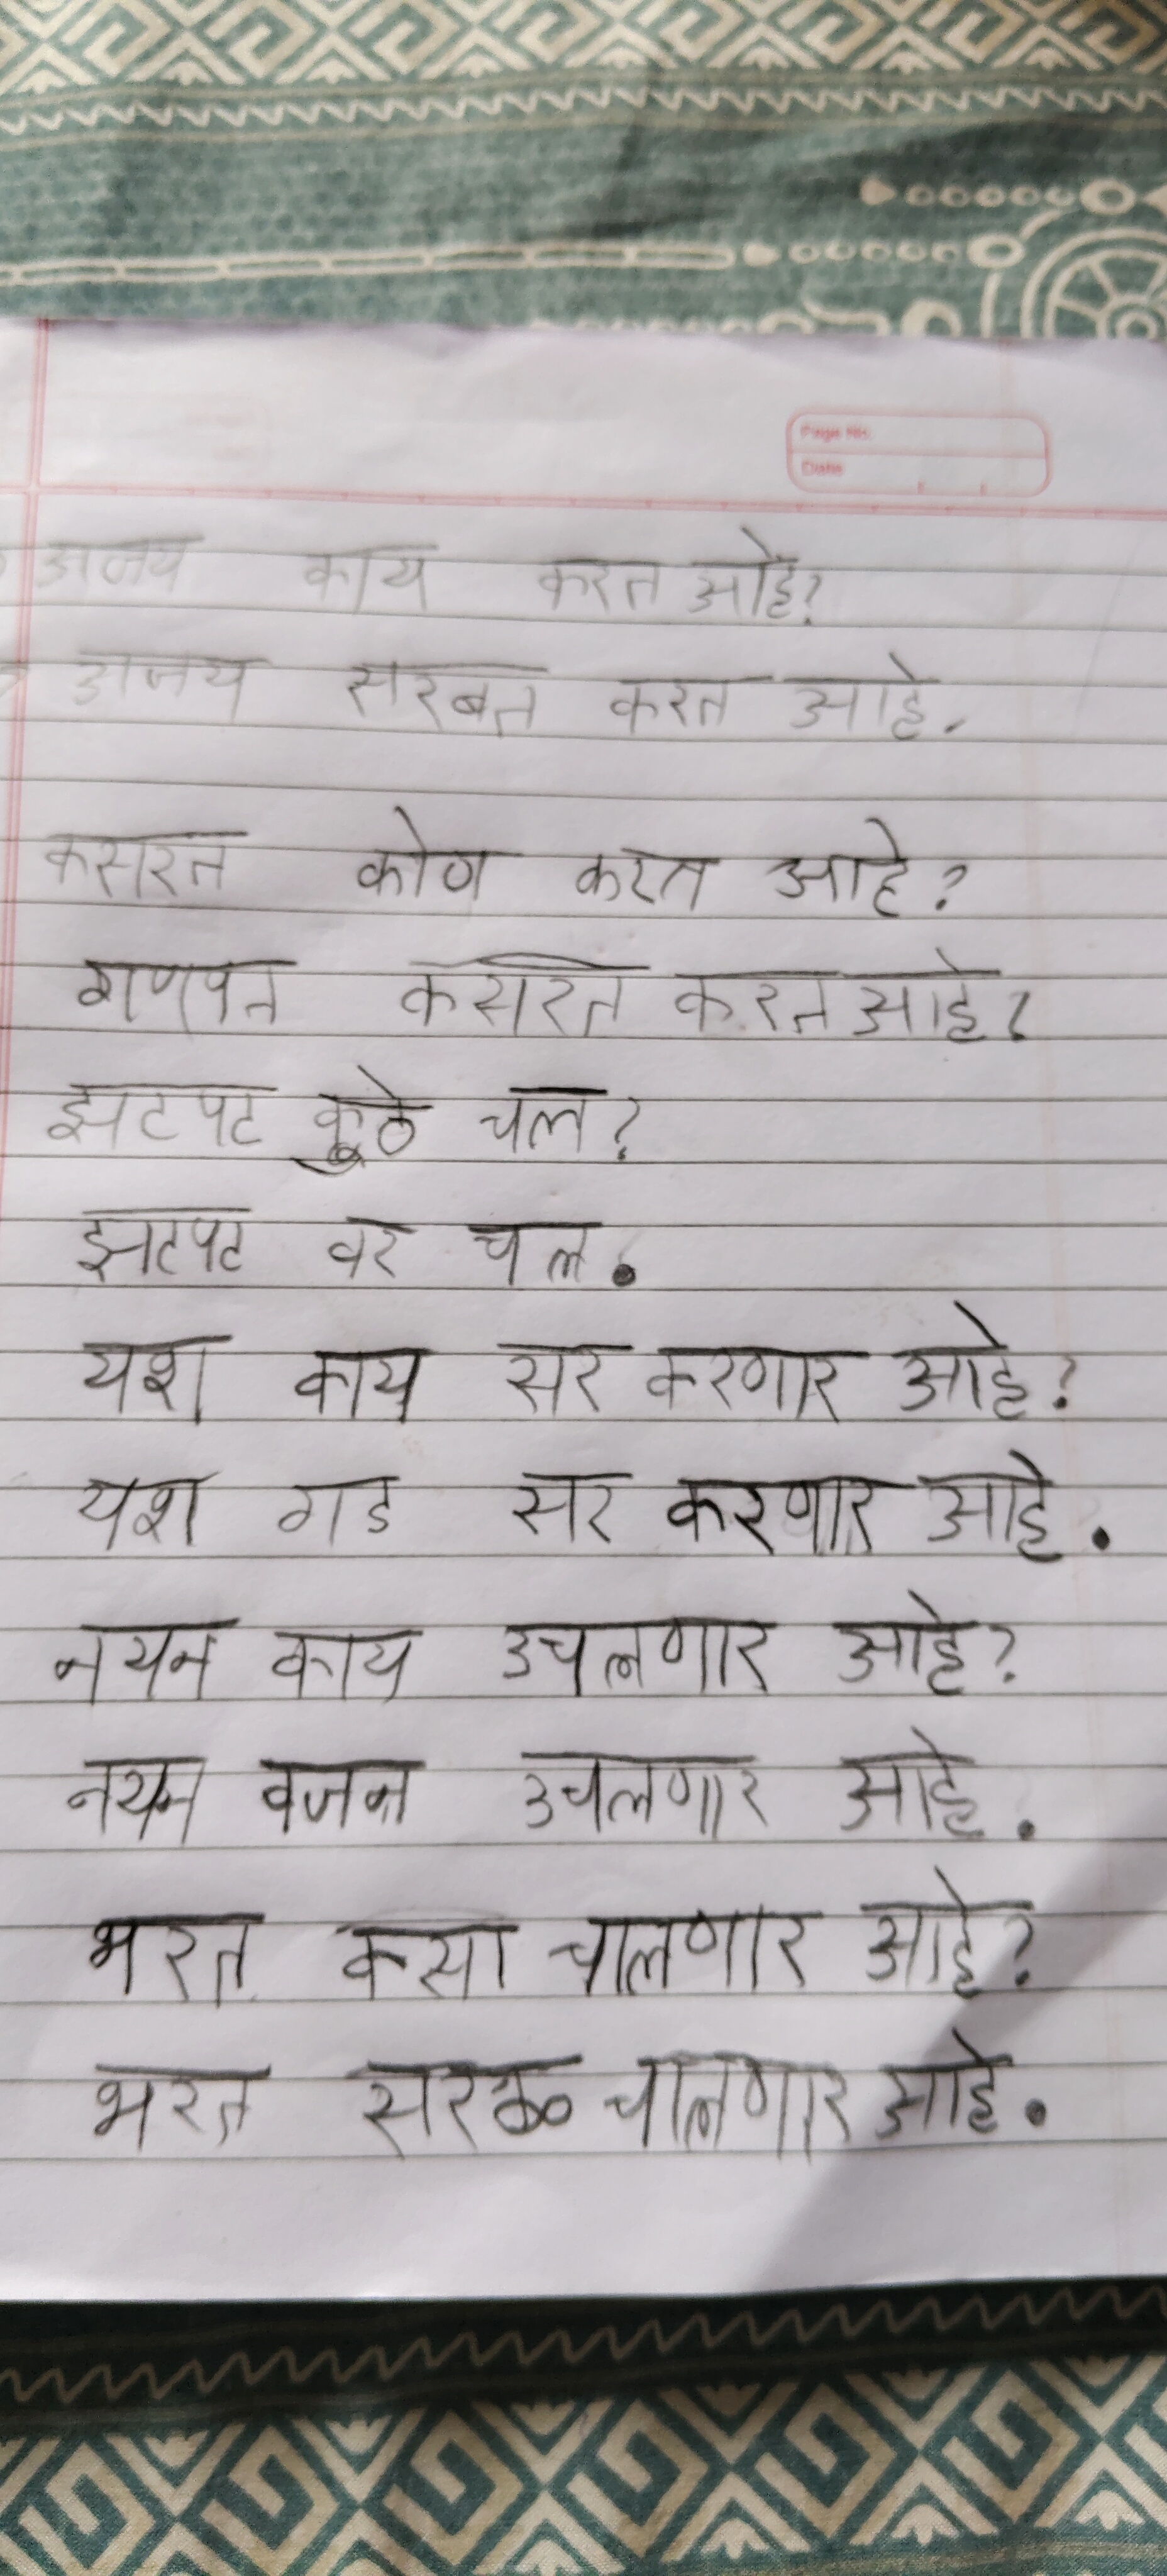 Page No.
Date
अजय काय करत आहे?
अजय सरबत करत आहे.
कसरत कोण करत आहे?
गणपत कसरत करत आहे?
झटपट कुठे चल?
झटपट वर चल.
यश काय सर करणार आहे?
यश गड सर करणार आहे.
नयन काय उचलणार आहे?
नयन वजन उचलणार आहे.
भरत कसा चालणार आहे?
भरत सरळ चालणार आहे.